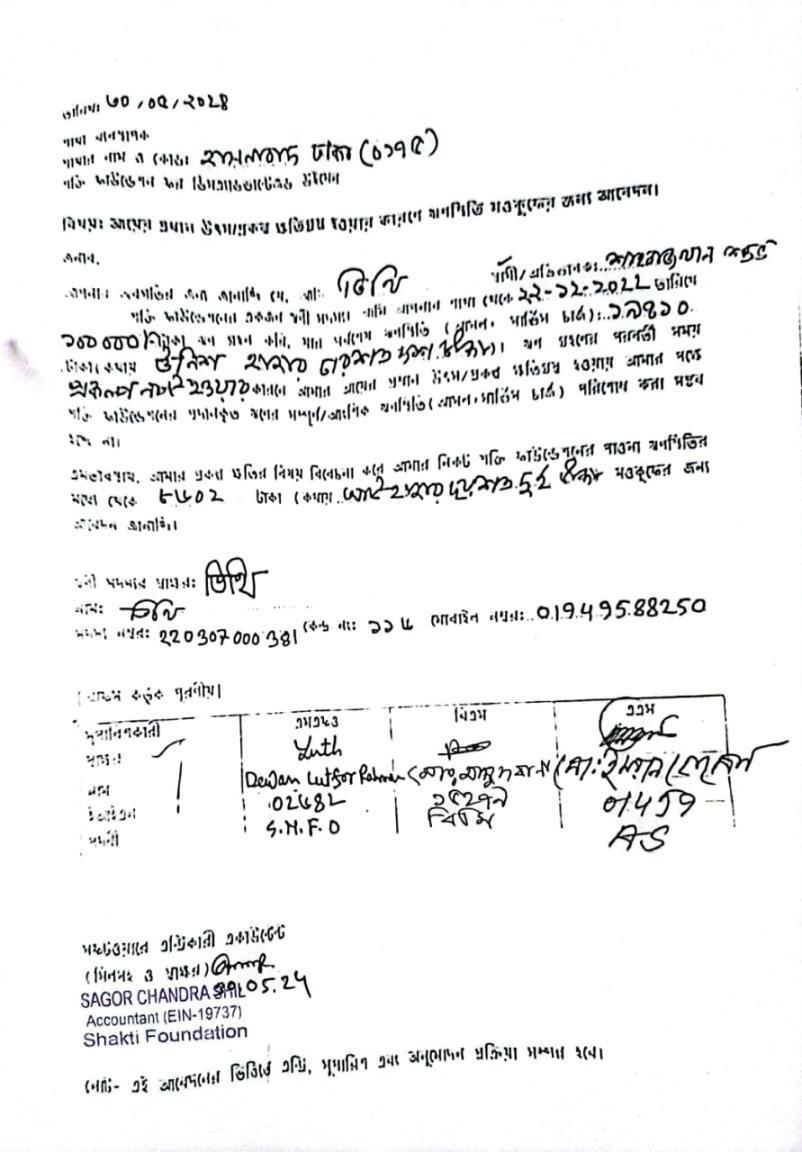 তারিখঃ ৩০/০৫/২০২৪
শাখা ব্যবস্থাপক
শাখার নাম ও কোডঃ ঢাকা (০১৭৫)
শক্তি ফাউন্ডেশন ফর ডিসএ্যাডভান্টেজড উইমেন
বিষয়ঃ আয়ের প্রধান উৎস/প্রকল্প ক্ষতিগ্রস্থ হওয়ার কারণে ঋণস্থিতি মওকুফের জন্য আবেদন।
জনাব,
জানাচ্ছি যে, আমিঃ তিথি স্বামী/অভিভাবকঃ
শক্তি ফাউন্ডেশনের একজন ঋণী সদস্য। আমি আপনার শাখা থেকে ২২-১২-২০২২ তারিখে
১০০০০০ টাকা ঋণ গ্রহণ করি, যার সর্বশেষ ঋণস্থিতি (আসল+ সার্ভিস চার্জ)ঃ ১৯৪১০
টাকা কথায় উনিশ হাজার চারশত দশ টাকা। ঋণ গ্রহণের পরবর্তী সময়
প্রকল্প নষ্ট হওয়ার কারনে আমার আয়ের প্রধান উৎস/প্রকল্প ক্ষতিগ্রস্থ হওয়ায় আমার পক্ষে
শক্তি ফাউন্ডেশনের প্রদানকৃত ঋণের সম্পূর্ণ/আংশিক ঋণস্থিতি (আসল+সার্ভিস চার্জ) পরিশোধ করা সম্ভব
হচ্ছে না।
এমতাবস্থায়, আমার প্রকল্প ক্ষতির বিষয় বিবেচনা করে আমার নিকট শক্তি ফাউন্ডেশনের পাওনা ঋণস্থিতির
মধ্যে থেকে ৮২০২ টাকা (কথায় আট হাজার দুইশত দুই টাকা মওকুফের জন্য
আবেদন জানাচ্ছি।
ঋণী সদস্যের স্বাক্ষরঃ তিথি
নামঃ তিথি
সদস্য নম্বরঃ 220307000381 কেন্দ্র নংঃ ১১৬ মোবাইল নম্বরঃ 01949588250
কর্তৃক পূরণীয়।
সুপারিশকারী এসএফও বিএম এএম
স্বাক্ষর Luth
নাম Dewan Lutfor Rahman
ইআইএন 02482 01459
পদবী S.N.F.O বিএম AS
সফটওয়্যারে এন্ট্রিকারী একাউন্টেন্ট
(সিলসহ ও স্বাক্ষর)
SAGOR CHANDRA SHIL 30.05.24
Accountant (EIN-19737)
Shakti Foundation
নোটঃ- এই আবেদনের ভিত্তিতে এন্ট্রি, সুপারিশ এবং অনুমোদন প্রক্রিয়া সম্পন্ন হবে।